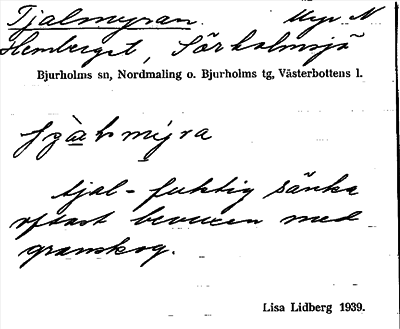 Tjalmyran. Myr N
Hemberget, Sörholmsjö
Bjurholms sn, Nordmaling o. Bjurholms tg, Västerbottens l.
tjal - fuktig sänka
oftast bevuxen med
granskog.
Lisa Lidberg 1939.